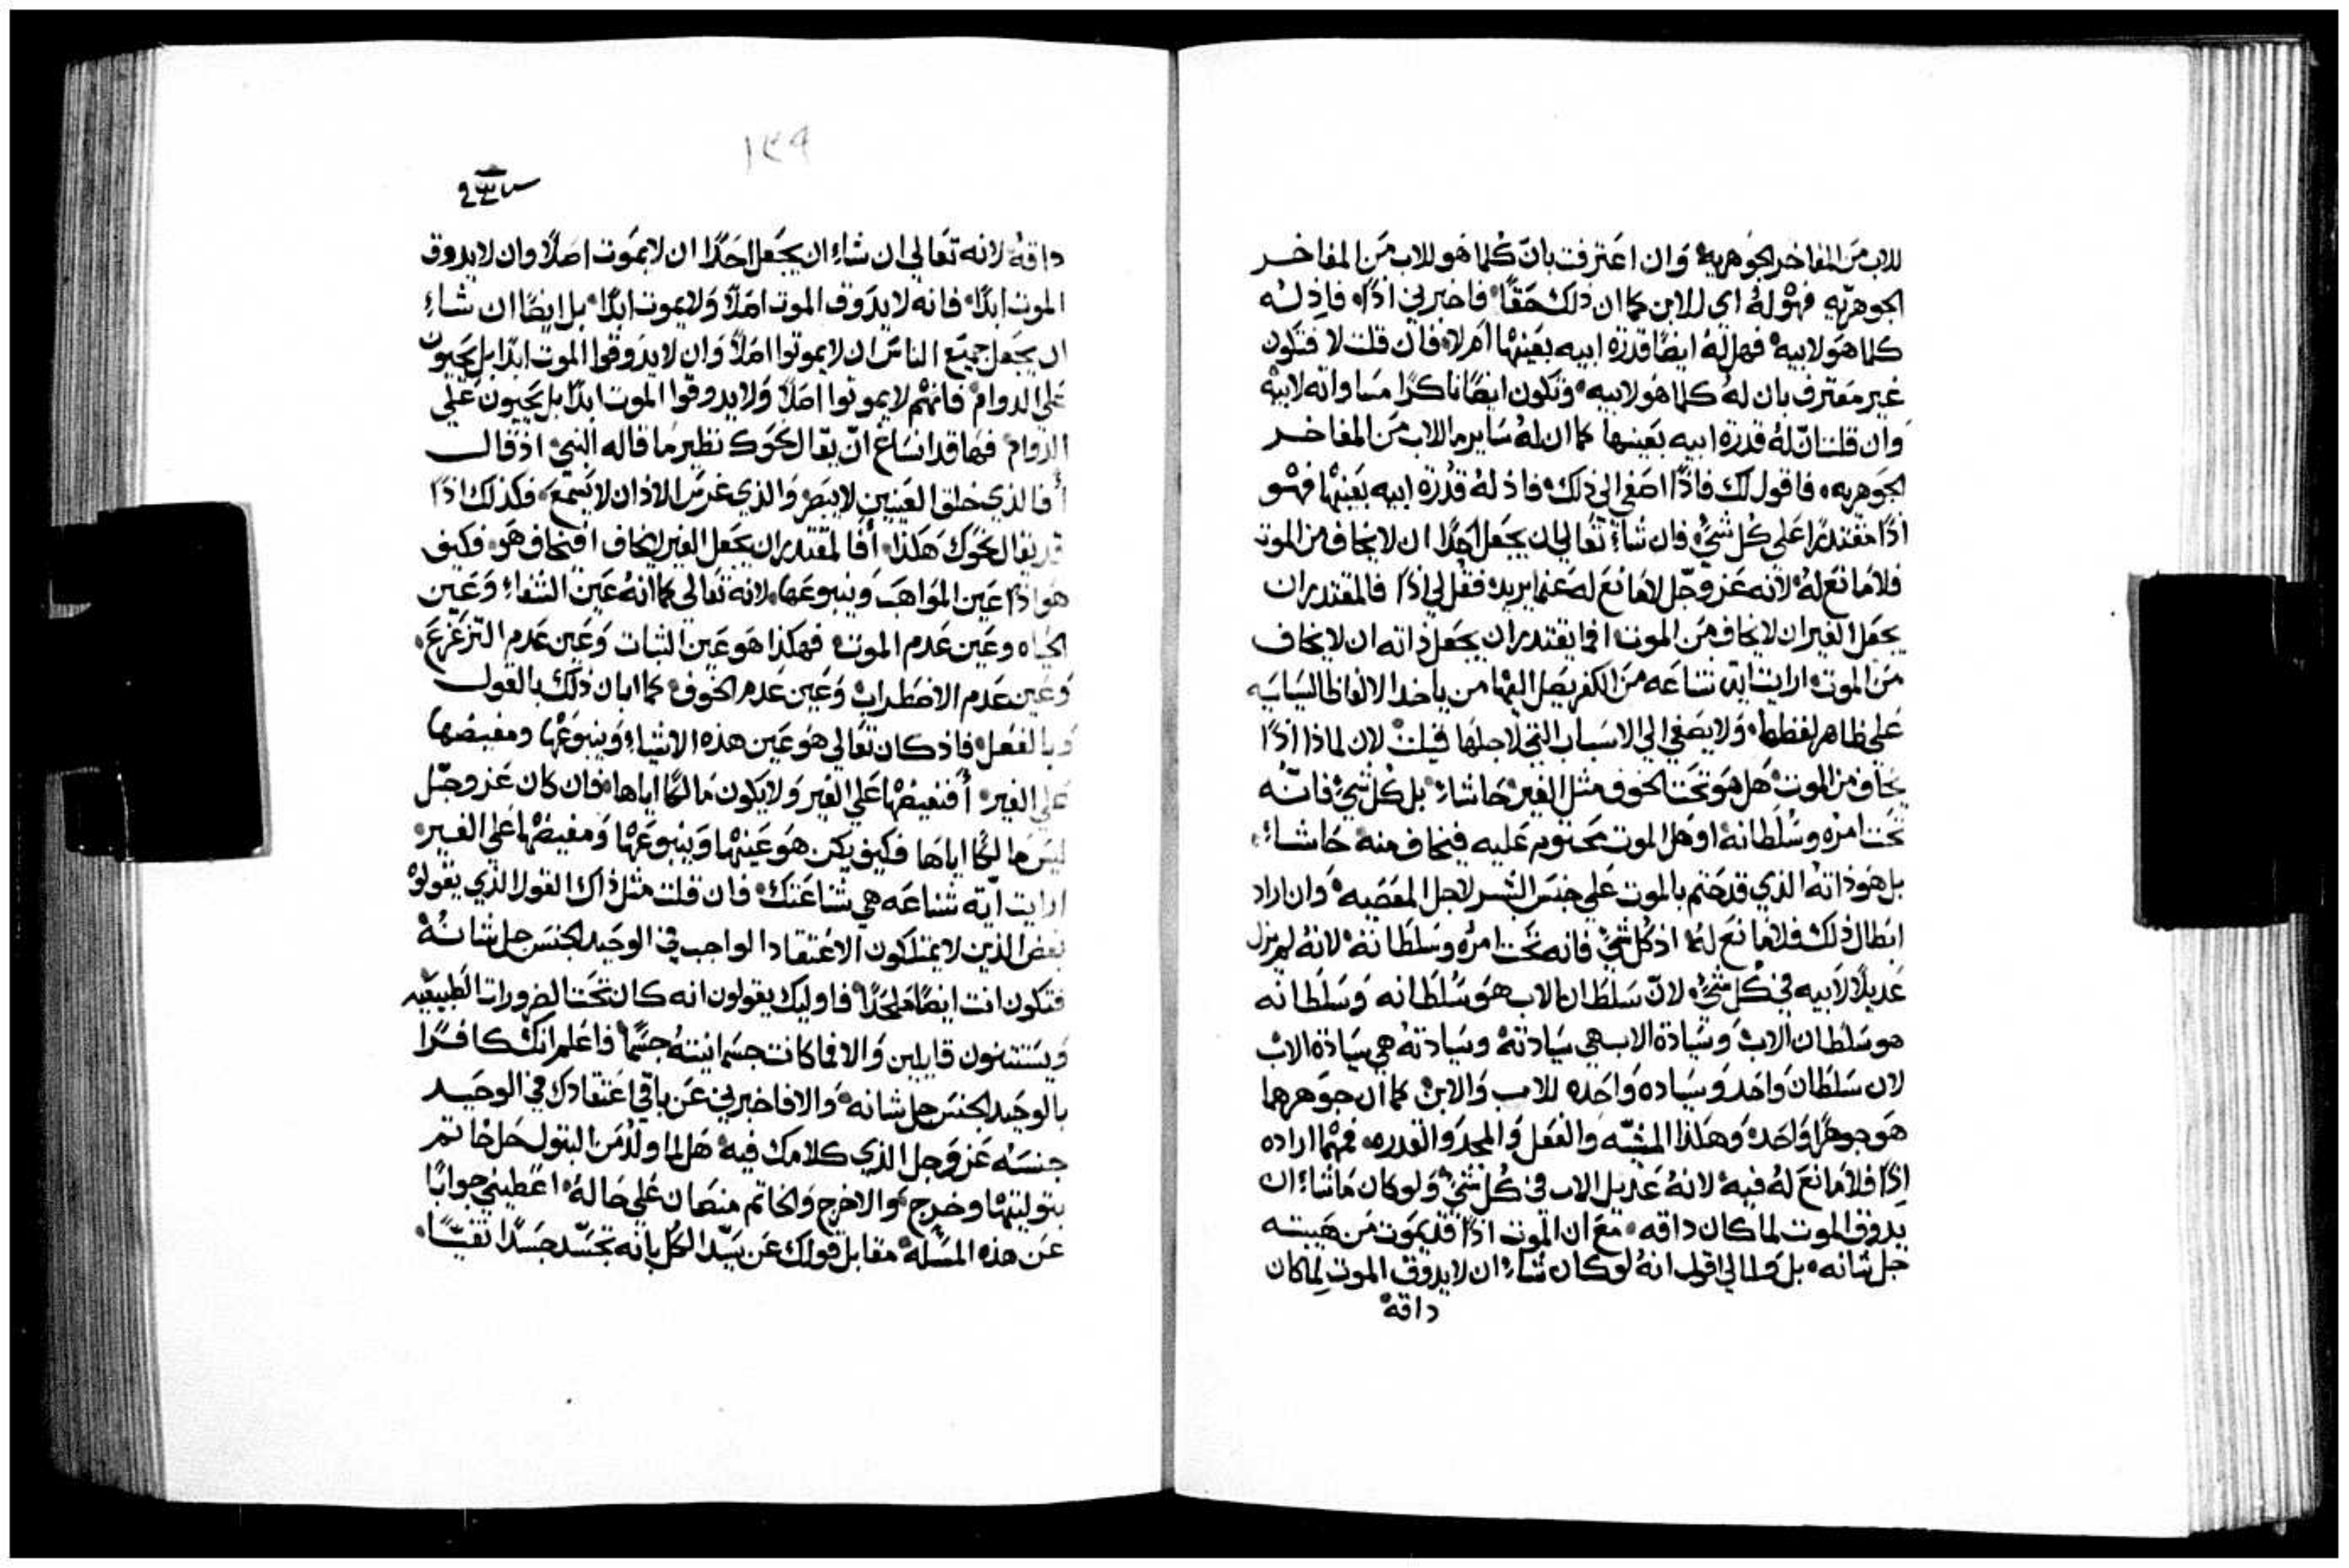 للاب من المفاخر الجوهريه وان اعترفت بان كلما هو للاب من المفاخر
الجوهريه فهو له اي للابن كما ان ذلك حقاً فاخبرني اذاً فاذ له
كلما هو لابيه فهل له ايضاً قدرة ابيه بعينها ام لا فان قلت لا فتكون
غير معترف بان له كلما هو لابيه وتكون ايضاً ناكراً مساواته لابيه
وان قلت ان له قدرة ابيه بعينها كما ان له ساير ما للاب من المفاخر
الجوهريه فاقول لك فاذاً اصغي الي ذلك فاذ له قدرة ابيه بعينها فهو
اذاً مقتدراً علي كل شي فان شاء تعالي ان يجعل احداً ان لا يخاف من الموت
فلا مانع له لانه عز وجل لا مانع له عما يريد فقل لي اذاً فالمقتدر ان
يجعل الغير ان لا يخاف من الموت افما يقتدر ان يجعل ذاته ان لا يخاف
من الموت ارايت اية شناعه من الكفر يصل اليها من ياخذ الالفاظ السياسيه
علي ظاهر لفظها ولا يصغي الي الاسباب التي لاجلها قيلت لان لماذا اذاً
يخاف من الموت هل هو تحت الخوف مثل الغير حاشاء بل كل شي فانه
تحت امره وسلطانه او هل الموت محتوم عليه فيخاف منه حاشاء
بل هو ذاته الذي قد حتم بالموت علي جنس البشر لاجل المعصيه وان اراد
ابطال ذلك فلا مانع له اذ كل شي فانه تحت امره وسلطانه لانه لم يزل
عديلاً لابيه في كل شي لان سلطان الاب هو سلطانه وسلطانه
هو سلطان الاب وسيادة الاب هي سيادته وسيادته هي سيادة الاب
لان سلطان واحد وسياده واحده للاب والابن كما ان جوهرهما
هو جوهراً واحد وهكذا المشيه والفعل والمجد والقدره فمهما اراده
اذاً فلا مانع له فيه لانه عديل الاب في كل شي ولو كان ما شاء ان
يدوق الموت لما كان داقه مع ان الموت اذاً قد يموت من هيبته
جل شانه بل ومالي اقول انه لو كان شاء ان لا يدوق الموت لما كان
داقه
١٣٩
داقه لانه تعالي ان شاء ان يجعل احداً ان لا يموت اصلاً وان لا يدوق
الموت ابداً فانه لا يدوق الموت اصلاً ولا يموت ابداً بل ايضاً ان شاء
ان يجعل جميع الناس ان لا يموتوا اصلاً وان لا يدوقوا الموت ابداً بل يحيون
علي الدوام فانهم لا يموتوا اصلاً ولا يدوقوا الموت ابداً بل يحيون علي
الدوام فها قد انساغ ان يقال نحوك نظير ما قاله النبي اذ قال
أفالذي خلق العينين لا يبصر والذي غرس الاذان لا يسمع فكذلك اذاً
قد يقال نحوك هكذا أفالمقتدر ان يجعل الغير لا يخاف افيخاف هو فكيف
هو اذاً عين المواهب وينبوعها لانه تعالي كما انه عين الشفاء وعين
الحياه وعين عدم الموت فهكذا هو عين الثبات وعين عدم التزعزع
وعين عدم الاضطراب وعين عدم الخوف كما ابان ذلك بالقول
وبالفعل فاذ كان تعالي هو عين هذه الاشياء وينبوعها ومفيضها
علي الغير أفيفيضها علي الغير ولا يكون مالكاً اياها فان كان عز وجل
ليس مالكاً اياها فكيف يكن هو عينها وينبوعها ومفيضها علي الغير
ارايت اية شناعه هي شناعتك فان قلت مثل ذاك القول الذي يقولوه
بعض الذين لا يمتلكون الاعتقاد الواجب في الوحيد الجنس جل شانه
فتكون انت ايضاً ملحداً فاوليك يقولون انه كان تحت الضرورات الطبيعيه
ويستثنون قايلين والا فما كانت جسمانيته جسماً فاعلم انك كافراً
بالوحيد الجنس جل شانه والا فاخبرني عن باقي اعتقادك في الوحيد
جنسه عز وجل الذي كلامك فيه هل لما ولد من البتول حل خاتم
بتوليتها وخرج والا خرج والخاتم منصان علي حاله اعطيني جواباً
عن هذه المسله مقابل قولك عن سيد الكل بانه تجسد جسداً نقيّاً